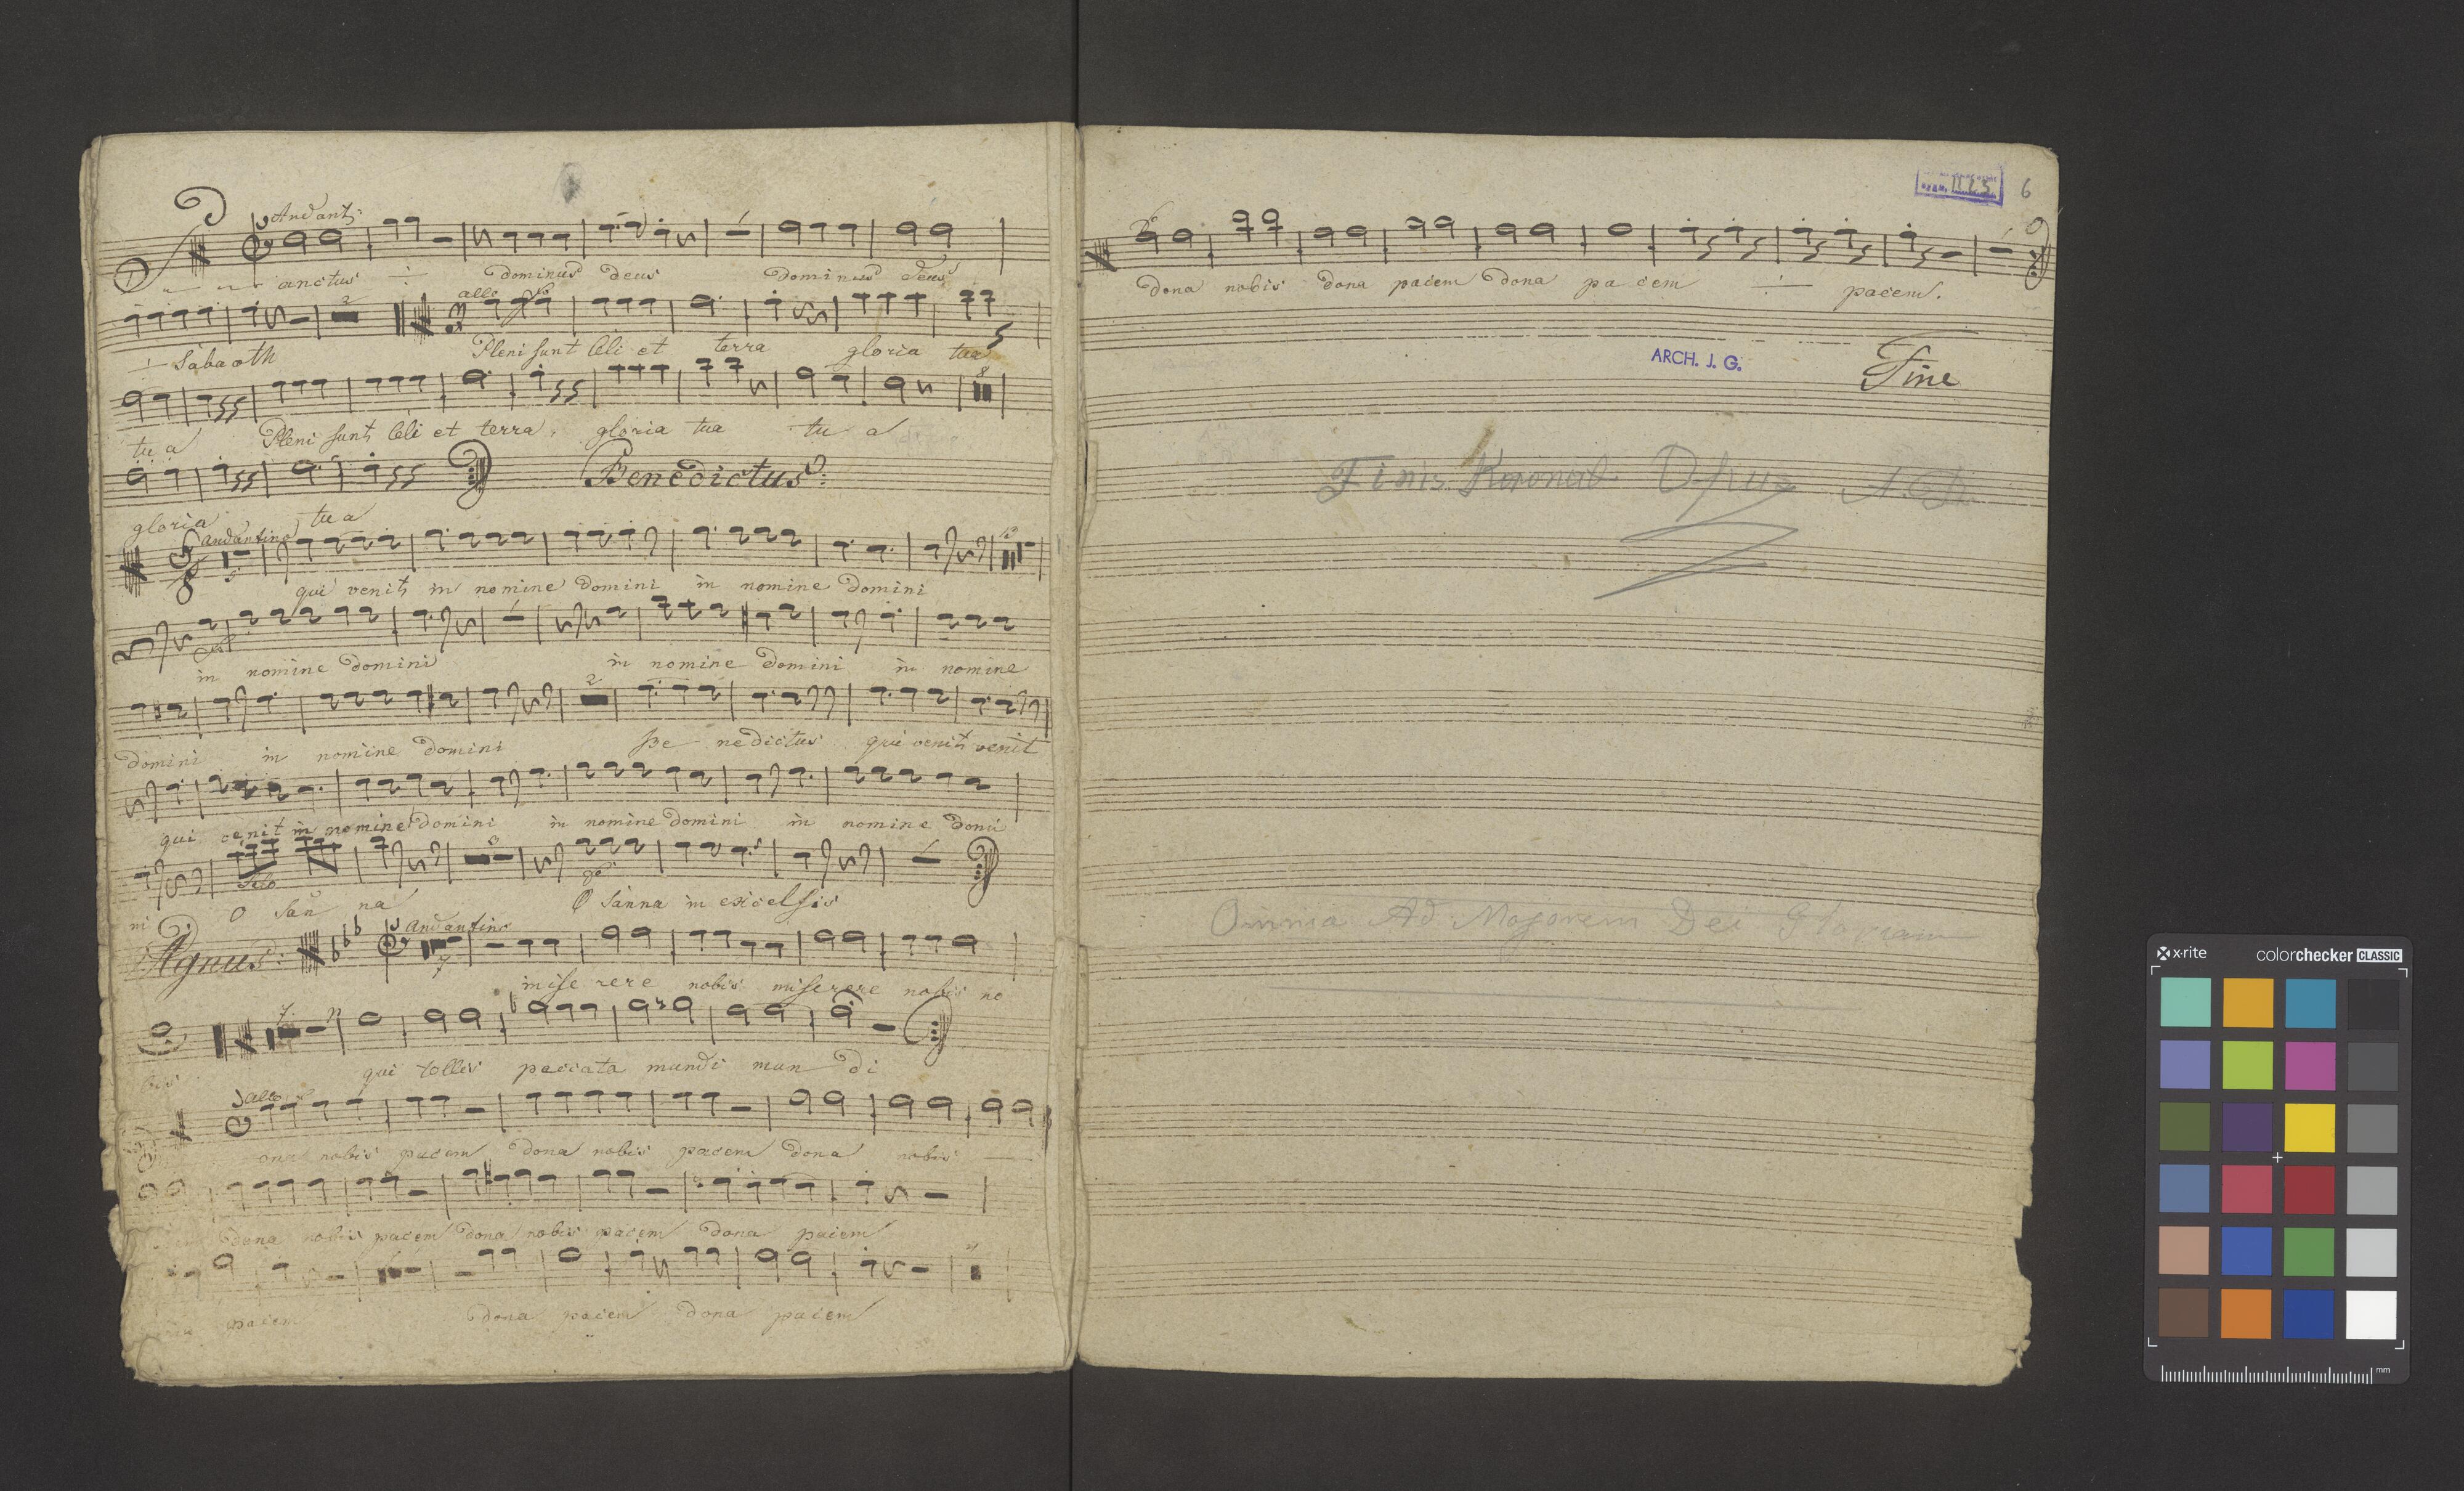 Andant:
anctus dominus deus dominus deus
2 allo
Sabaoth Pleni sunt celi et terra gloria tua
8
tua Pleni sunt celi et terra gloria tua tu a
Benedictus:
gloria tua
andantino
5
qui venit in nomine domini in nomine domini
in nomine domini in nomine domini in nomine
2
domini in nomine domini Be nedictus qui venit venit
qui venit in nomine domini in nomine domini in nomine domi
Solo
ni O san na O sanna in excelsis
Agnus: andantino
7
mise rere nobis miserere nobis no
7
bis qui tollis peccata mundi mun di
allo
ona nobis pacem dona nobis pacem dona nobis
dona nobis pacem dona nobis pacem dona pacem
pacem dona pacem dona pacem
6
dona nobis dona pacem dona pa cem pacem.
ARCH. J. G.
Fine
Finis Koronat Opus
Omnia Ad Majorem Dei Gloriam
x-rite colorchecker CLASSIC
mm